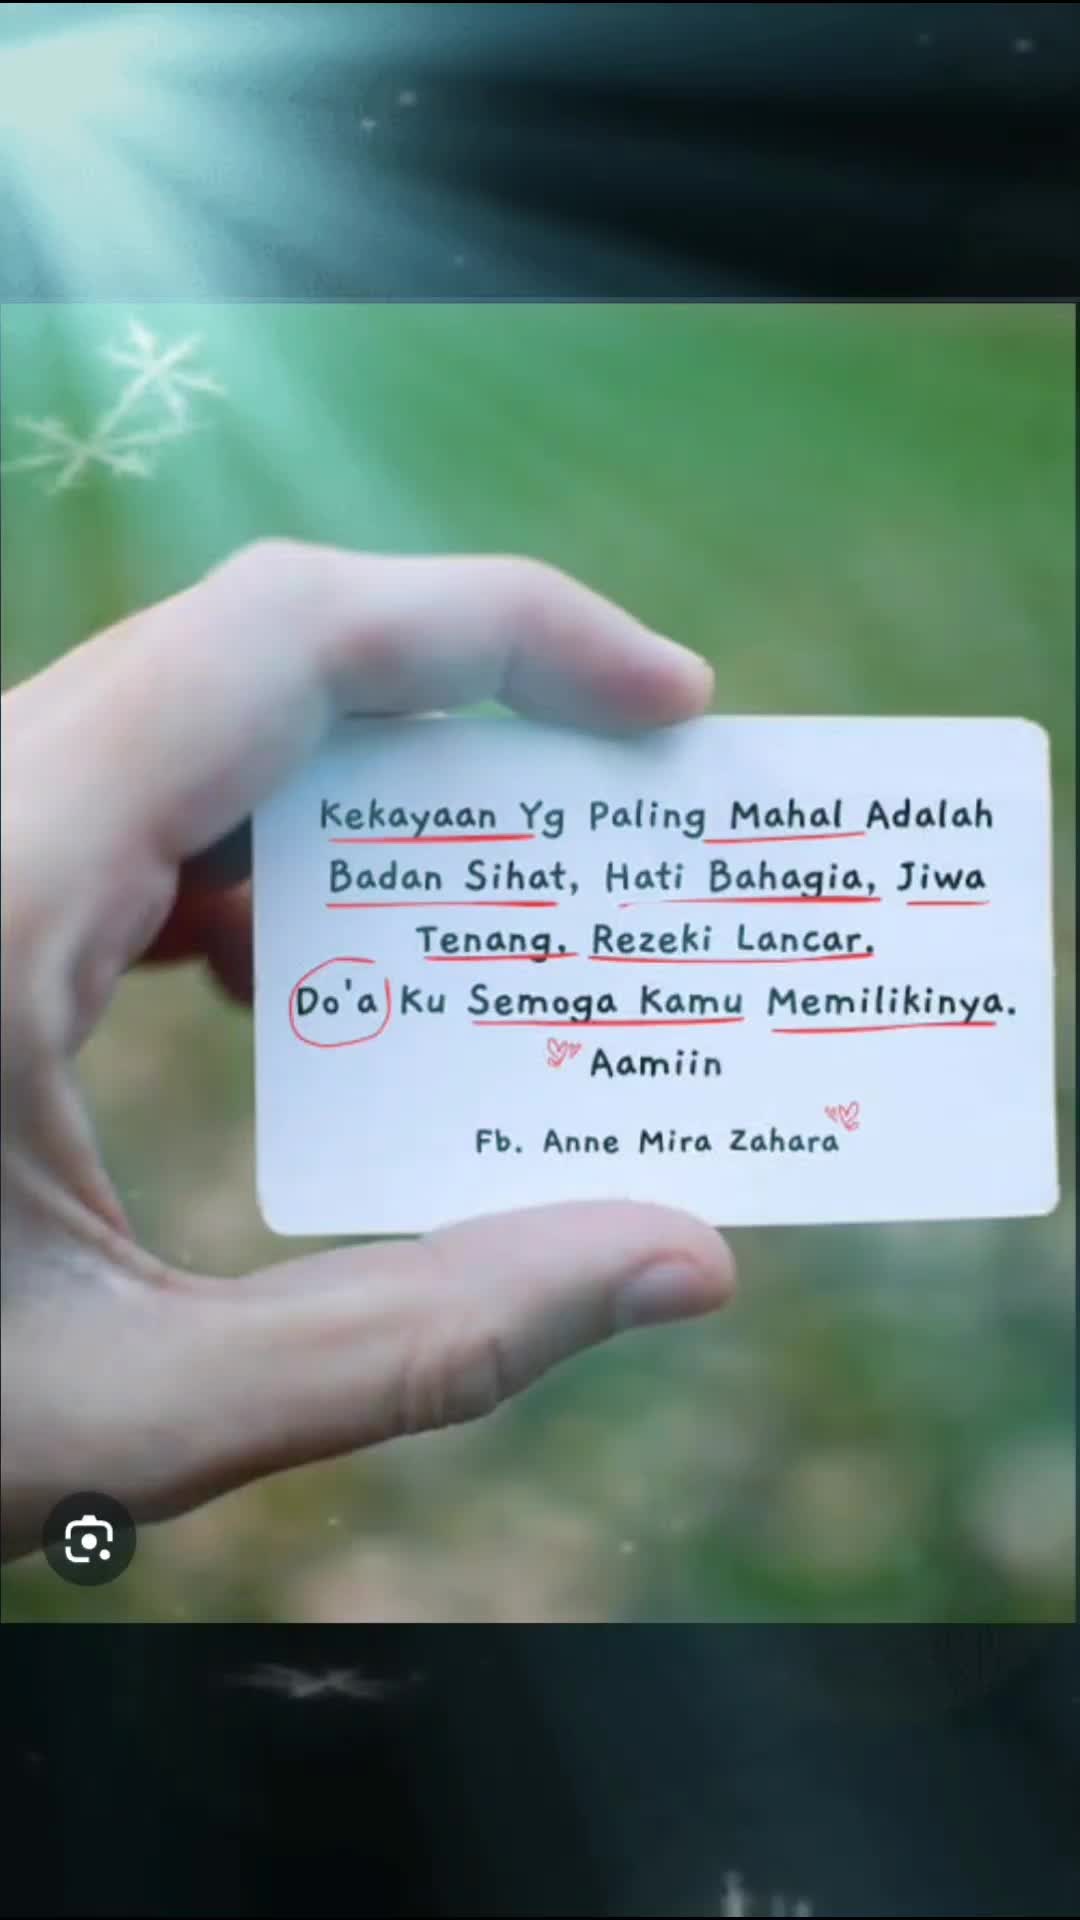 Kekayaan Yg Paling Mahal Adalah
Badan Sihat, Hati Bahagia, Jiwa
Tenang. Rezeki Lancar.
Do'a Ku Semoga Kamu Memilikinya.
Aamiin
Fb. Anne Mira Zahara